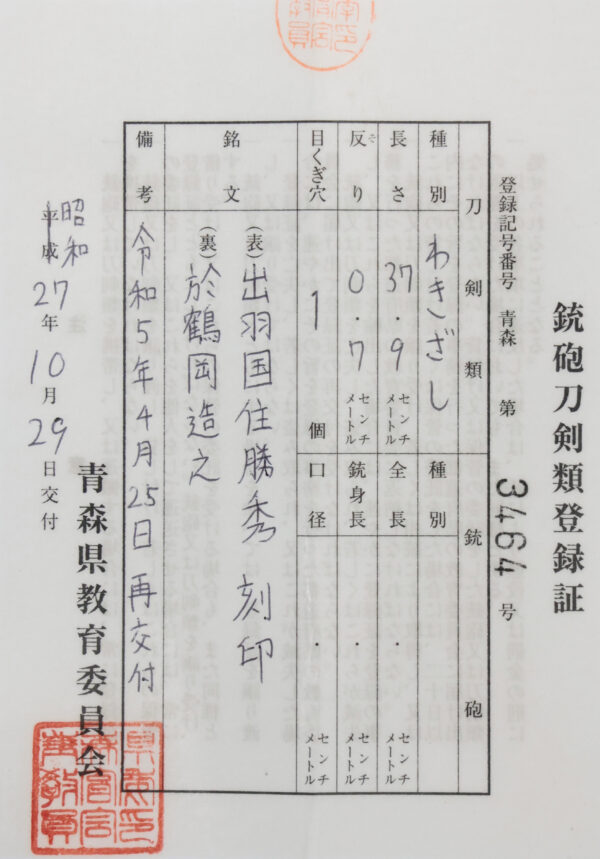 銃砲刀剣類登録証
登録記号番号 青森 第 3464 号
刀剣類 銃砲
種別 わきざし 種別
長さ 37.9 センチメートル 全長 . センチメートル
反り 0.7 センチメートル 銃身長 . センチメートル
そ
目くぎ穴 1 個 口径 . センチメートル
銘文 (表) 出羽国住勝秀 刻印
(裏) 於鶴岡造之
備考 令和5年4月25日 再交付
昭和
平成 27年 10月 29日交付
青森県教育委員会